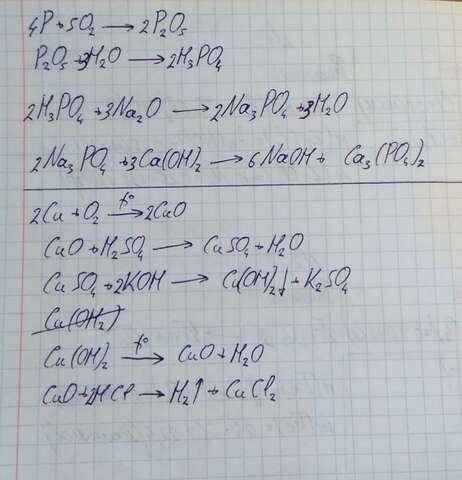 4P + 5O₂ → 2P₂O₅
P₂O₅ + 3H₂O → 2H₃PO₄
2H₃PO₄ + 3Na₂O → 2Na₃PO₄ + 3H₂O
2Na₃PO₄ + 3Ca(OH)₂ → 6NaOH + Ca₃(PO₄)₂
2Cu + O₂ t°→ 2CuO
CuO + H₂SO₄ → CuSO₄ + H₂O
CuSO₄ + 2KOH → Cu(OH)₂↓ + K₂SO₄
Cu(OH₂)
Cu(OH)₂ t°→ CuO + H₂O
CuO + 2HCl → H₂↑ + CuCl₂